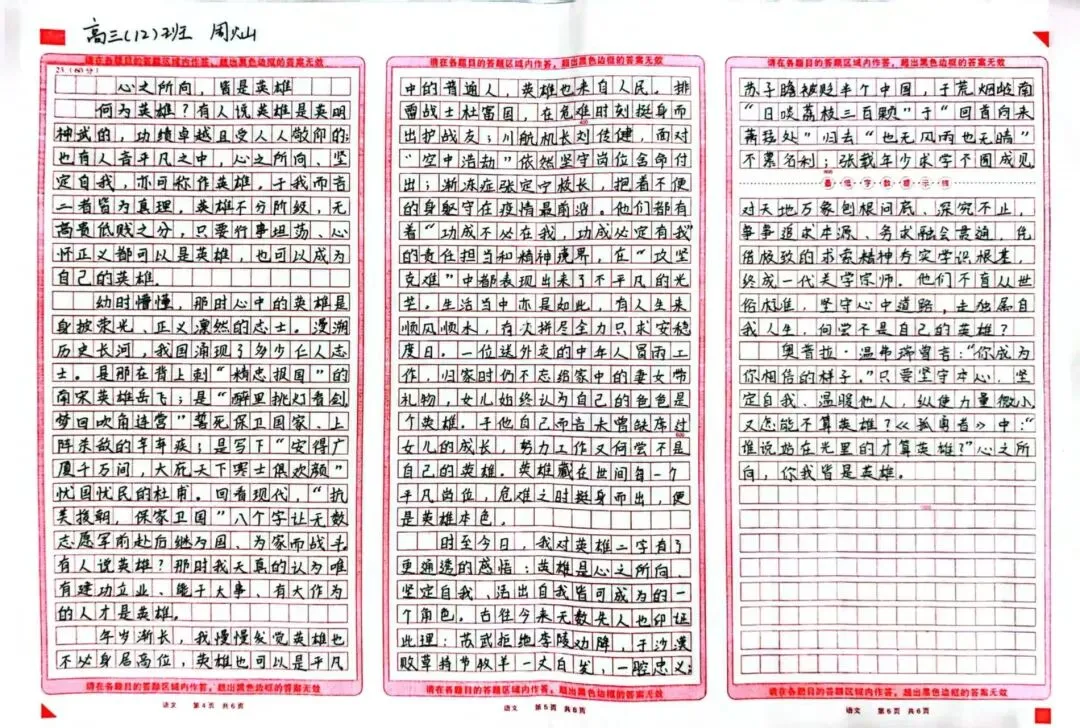 高三(12)班 周火山
请在各题目的答题区域内作答，超出黑色边框的答案无效
23.(60分)
心之所向，皆是英雄
何为英雄？有人说英雄是英明
神武的，功绩卓越且受人人敬仰的；
也有人言平凡之中，心之所向、坚
定自我，亦可称作英雄，于我而言
二者皆为真理，英雄不分阶级，无
高贵低贱之分，只要行事坦荡、心
怀正义都可以是英雄，也可以成为
自己的英雄。
幼时懵懂，那时心中的英雄是
身披荣光、正义凛然的志士。漫溯
历史长河，我国涌现了多少仁人志
士。是那在背上刺“精忠报国”的
南宋英雄岳飞；是“醉里挑灯看剑，
梦回吹角连营”誓死保卫国家、上
阵杀敌的辛弃疾；是写下“安得广
厦千万间，大庇天下寒士俱欢颜”
忧国忧民的杜甫。回看现代，“抗
美援朝，保家卫国”八个字让无数
志愿军前赴后继为国、为家而战斗。
有人说英雄？那时我天真的认为唯
有建功立业、能干大事、有大作为
的人才是英雄。
年岁渐长，我慢慢发觉英雄也
不必身居高位，英雄也可以是平凡
请在各题目的答题区域内作答，超出黑色边框的答案无效
语文 第4页 共6页
请在各题目的答题区域内作答，超出黑色边框的答案无效
中的普通人，英雄也来自人民。排
雷战士杜富国，在危难时刻挺身而
400
出护战友；川航机长刘传健，面对
“空中浩劫”依然坚守岗位舍命付
出；渐冻症张定宇校长，抱着不便
的身躯守在疫情最前沿。他们都有
着“功成不必在我，功成必定有我”
的责任担当和精神境界，在“攻坚
克难”中都表现出来了不平凡的光
芒。生活当中亦是如此，有人生来
顺风顺水，有人拼尽全力只求安稳
度日。一位送外卖的中年人冒雨工
作，归家时仍不忘给家中的妻女带
礼物，女儿始终认为自己的爸爸是
个英雄。于他自己而言未曾缺席过
600
女儿的成长，努力工作又何尝不是
自己的英雄。英雄藏在世间每一个
平凡岗位，危难之时挺身而出，便
是英雄本色。
时至今日，我对英雄二字有了
更通透的感悟：英雄是心之所向、
坚定自我、活出自我皆可成为的一
个角色。古往今来无数先人也印证
此理：苏武拒绝李陵劝降，于沙漠
败草持节牧羊一丈白发，一腔忠义；
请在各题目的答题区域内作答，超出黑色边框的答案无效
语文 第5页 共6页
请在各题目的答题区域内作答，超出黑色边框的答案无效
苏子瞻被贬半个中国，于荒烟岭南
“日啖荔枝三百颗”于“回首向来
萧瑟处”归去“也无风雨也无晴”
不慕名利；张载年少求学不囿成见
800
最低字数提示线
对天地万象刨根问底、深究不止，
事事追求本源、务求融会贯通，凭
借极致的求索精神夯定学识根基，
终成一代关学宗师。他们不盲从世
俗标准，坚守心中道路，走独属自
我人生，何尝不是自己的英雄？
奥普拉·温弗瑞曾言：“你成为
你相信的样子。”只要坚守本心，坚
定自我、温暖他人，纵使力量微小
又怎能不算英雄？《孤勇者》中：“
谁说站在光里的才算英雄？”心之所
向，你我皆是英雄。
请在各题目的答题区域内作答，超出黑色边框的答案无效
语文 第6页 共6页